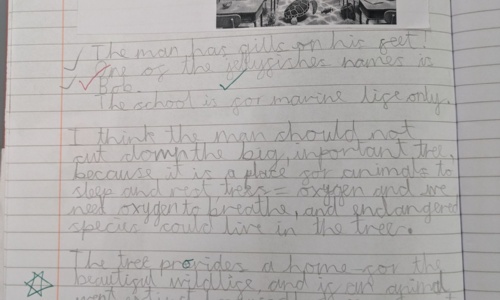 The man has gills on his feet!
One of the jellyfishes names is
Bob.
The school is for marine life only.
I think the man should not
cut down the big, important tree,
because it is a place for animals to
sleep and rest trees = oxygen and we
need oxygen to breathe, and endangered
species could live in the tree.
The tree provides a home for the
beautiful wildlife and is an animal